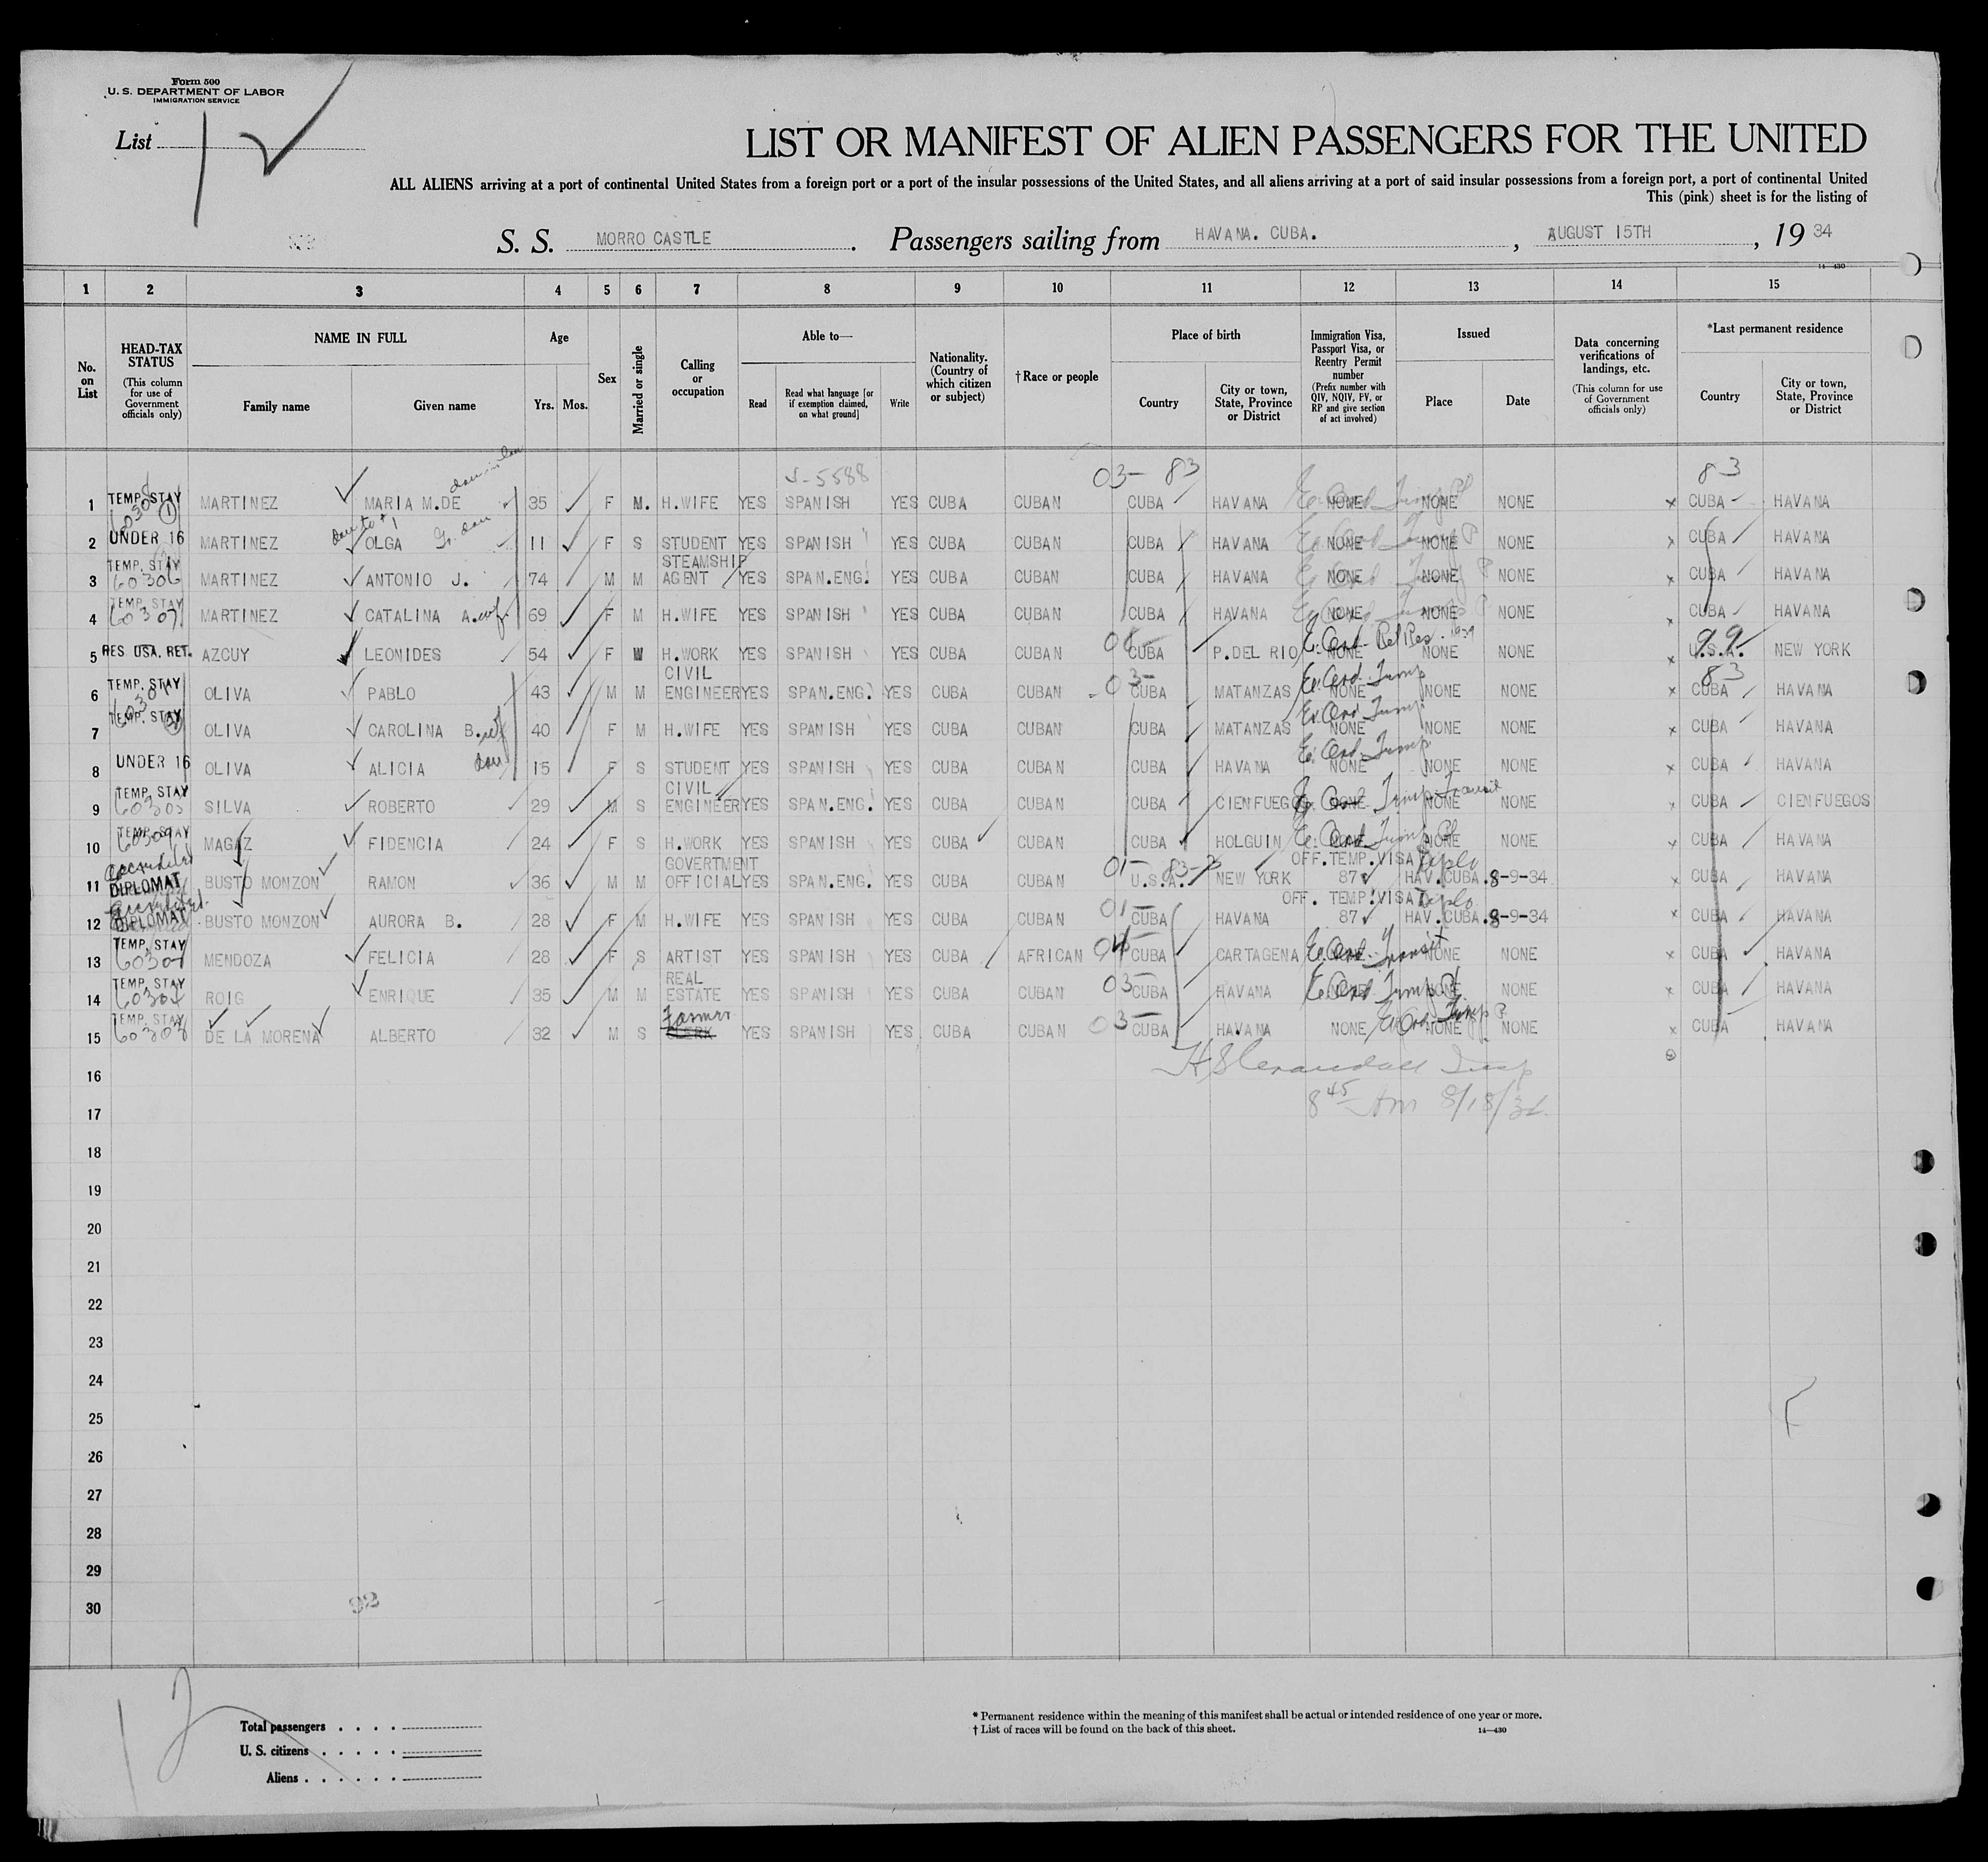 Form 500
U. S. DEPARTMENT OF LABOR
IMMIGRATION SERVICE
List 1
LIST OR MANIFEST OF ALIEN PASSENGERS FOR THE UNITED
ALL ALIENS arriving at a port of continental United States from a foreign port or a port of the insular possessions of the United States, and all aliens arriving at a port of said insular possessions from a foreign port, a port of continental United
This (pink) sheet is for the listing of
S. S. MORRO CASTLE. Passengers sailing from HAVANA. CUBA. , AUGUST 15TH , 19 34
14—430
1 2 3 4 5 6 7 8 9 10 11 12 13 14 15
No. on List
HEAD-TAX STATUS (This column for use of Government officials only)
NAME IN FULL
Family name Given name
Age
Yrs. Mos.
Sex
Married or single
Calling or occupation
Able to—
Read Read what language [or if exemption claimed, on what ground] Write
Nationality. (Country of which citizen or subject)
† Race or people
Place of birth
Country City or town, State, Province or District
Immigration Visa, Passport Visa, or Reentry Permit number (Prefix number with QIV, NQIV, PV, or RP and give section of act involved)
Issued
Place Date
Data concerning verifications of landings, etc. (This column for use of Government officials only)
*Last permanent residence
Country City or town, State, Province or District
S-5588 03- 83 83
1 TEMP. STAY MARTINEZ MARIA M.DE 35 F M. H.WIFE YES SPANISH YES CUBA CUBAN CUBA HAVANA NONE NONE NONE x CUBA HAVANA
2 UNDER 16 MARTINEZ OLGA 11 F S STUDENT YES SPANISH YES CUBA CUBAN CUBA HAVANA NONE NONE NONE x CUBA HAVANA
3 TEMP. STAY 60306 MARTINEZ ANTONIO J. 74 M M STEAMSHIP AGENT YES SPAN.ENG. YES CUBA CUBAN CUBA HAVANA NONE NONE NONE x CUBA HAVANA
4 TEMP. STAY 60307 MARTINEZ CATALINA A. wf 69 F M H.WIFE YES SPANISH YES CUBA CUBAN CUBA HAVANA NONE NONE NONE x CUBA HAVANA
5 RES. USA. RET. AZCUY LEONIDES 54 F W H.WORK YES SPANISH YES CUBA CUBAN CUBA P.DEL RIO NONE NONE NONE x U.S.A. 99 NEW YORK
6 TEMP. STAY OLIVA PABLO 43 M M CIVIL ENGINEER YES SPAN.ENG. YES CUBA CUBAN 03- CUBA MATANZAS NONE NONE NONE x 83 CUBA HAVANA
7 TEMP. STAY OLIVA CAROLINA B. wf 40 F M H.WIFE YES SPANISH YES CUBA CUBAN CUBA MATANZAS NONE NONE NONE x CUBA HAVANA
8 UNDER 16 OLIVA ALICIA dau 15 F S STUDENT YES SPANISH YES CUBA CUBAN CUBA HAVANA NONE NONE NONE x CUBA HAVANA
9 TEMP. STAY 60303 SILVA ROBERTO 29 M S CIVIL ENGINEER YES SPAN.ENG. YES CUBA CUBAN CUBA CIENFUEGO NONE Transit NONE NONE x CUBA CIENFUEGOS
10 TEMP. STAY 60309 MAGAZ FIDENCIA 24 F S H.WORK YES SPANISH YES CUBA CUBAN CUBA HOLGUIN NONE NONE NONE x CUBA HAVANA
11 accredited DIPLOMAT BUSTO MONZON RAMON 36 M M GOVERTMENT OFFICIAL YES SPAN.ENG. YES CUBA CUBAN 01- 83 U.S.A. NEW YORK OFF.TEMP.VISA Diplo 87 HAV.CUBA. 8-9-34 x CUBA HAVANA
12 accredited DIPLOMAT BUSTO MONZON AURORA B. 28 F M H.WIFE YES SPANISH YES CUBA CUBAN 01- CUBA HAVANA OFF. TEMP.VISA Diplo 87 HAV.CUBA. 8-9-34 x CUBA HAVANA
13 TEMP. STAY MENDOZA FELICIA 28 F S ARTIST YES SPANISH YES CUBA AFRICAN 04 CUBA CARTAGENA NONE Transit NONE NONE x CUBA HAVANA
14 TEMP. STAY 60304 ROIG ENRIQUE 35 M M REAL ESTATE YES SPANISH YES CUBA CUBAN 03- CUBA HAVANA NONE NONE NONE x CUBA HAVANA
15 TEMP. STAY DE LA MORENA ALBERTO 32 M S Farmer CLERK YES SPANISH YES CUBA CUBAN 03- CUBA HAVANA NONE NONE NONE x CUBA HAVANA
16
8 45 Am 8/18/34
17
18
19
20
21
22
23
24
25
26
27
28
29
30
32
Total passengers
U. S. citizens
Aliens
* Permanent residence within the meaning of this manifest shall be actual or intended residence of one year or more.
† List of races will be found on the back of this sheet. 14—430